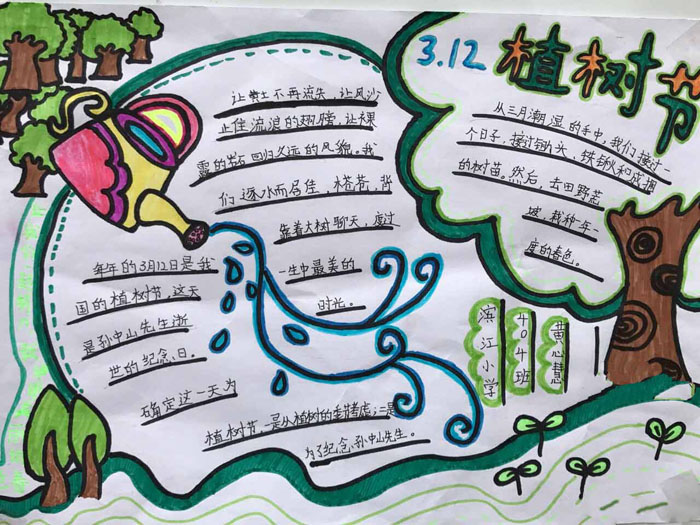 3.12 植树节
让黄土不再流失，让风沙
止住流浪的翅膀，让裸
露的岩石回归久远的风貌。我
们逐水而居住，搭若，背
靠着大树聊天，度过
一生中最美的
时光。
从三月潮湿的手中，我们接过一
个日子，接过锄头，铁锹和成捆
的树苗。然后，去田野荒
坡，栽种一年一
度的春色。
每年的3月12日是我
国的植树节，这天
是孙中山先生逝
世的纪念日。
确定这一天为
植树节，一是从植树的季节考虑；二是
为了纪念孙中山先生。
滨江小学
404班
黄心慧